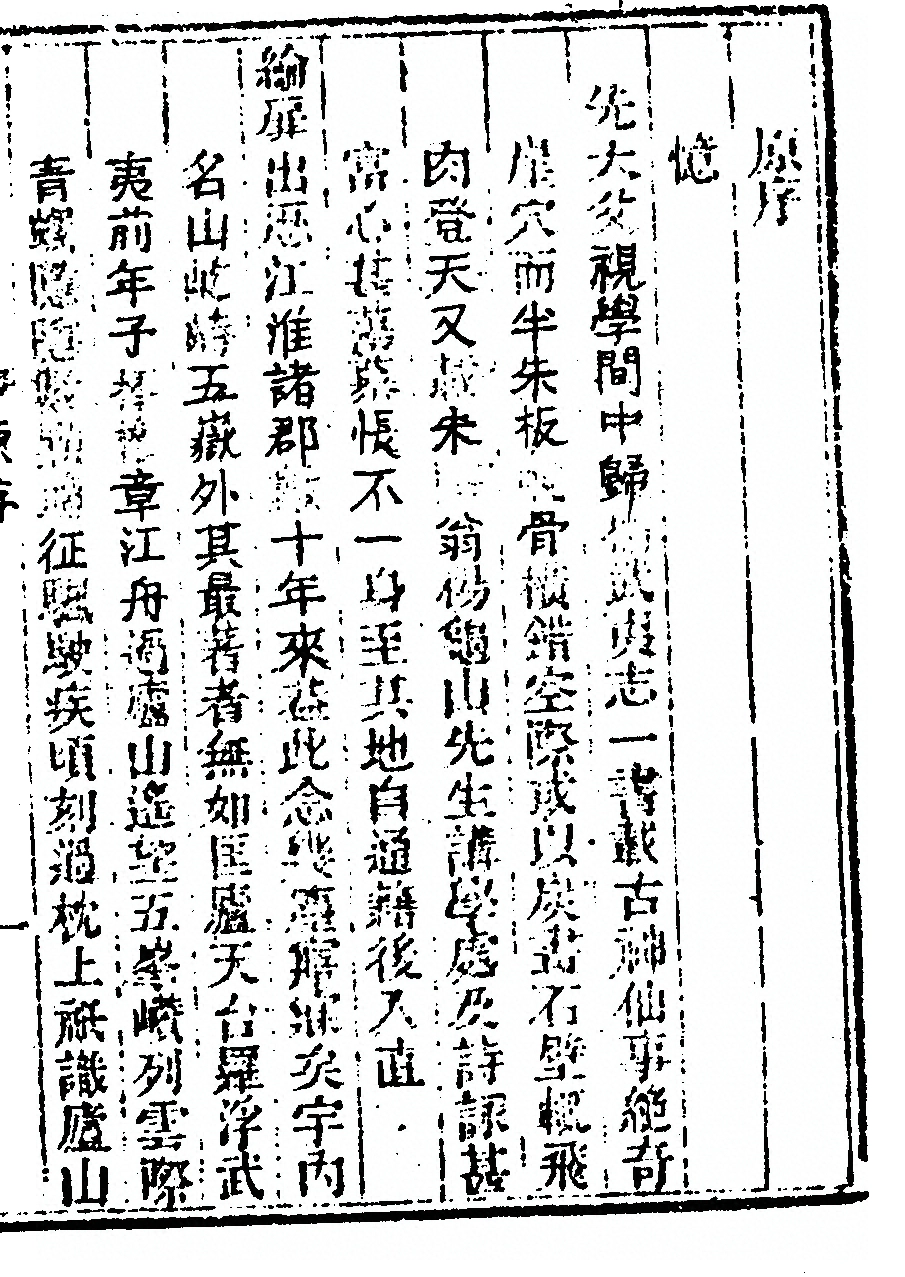 原序
憶
先大父視學閩中歸武夷志一書載古神仙事絶奇
崖穴而半朱板骨橫錯空際或以炭書石壁輒飛
肉登天又未翁楊龜山先生講學處及詩詠甚
富心甚慕悵不一身至其地自通籍後入直
綸扉出歷江淮諸郡十年來此念幾寤寐矣宇内
名山屹峙五嶽外其最著者無如匡廬天台羅浮武
夷前年子章江舟過廬山遙望五峯巑列雲際
青螺隱征颿駛疾頃刻過枕上祇識廬山